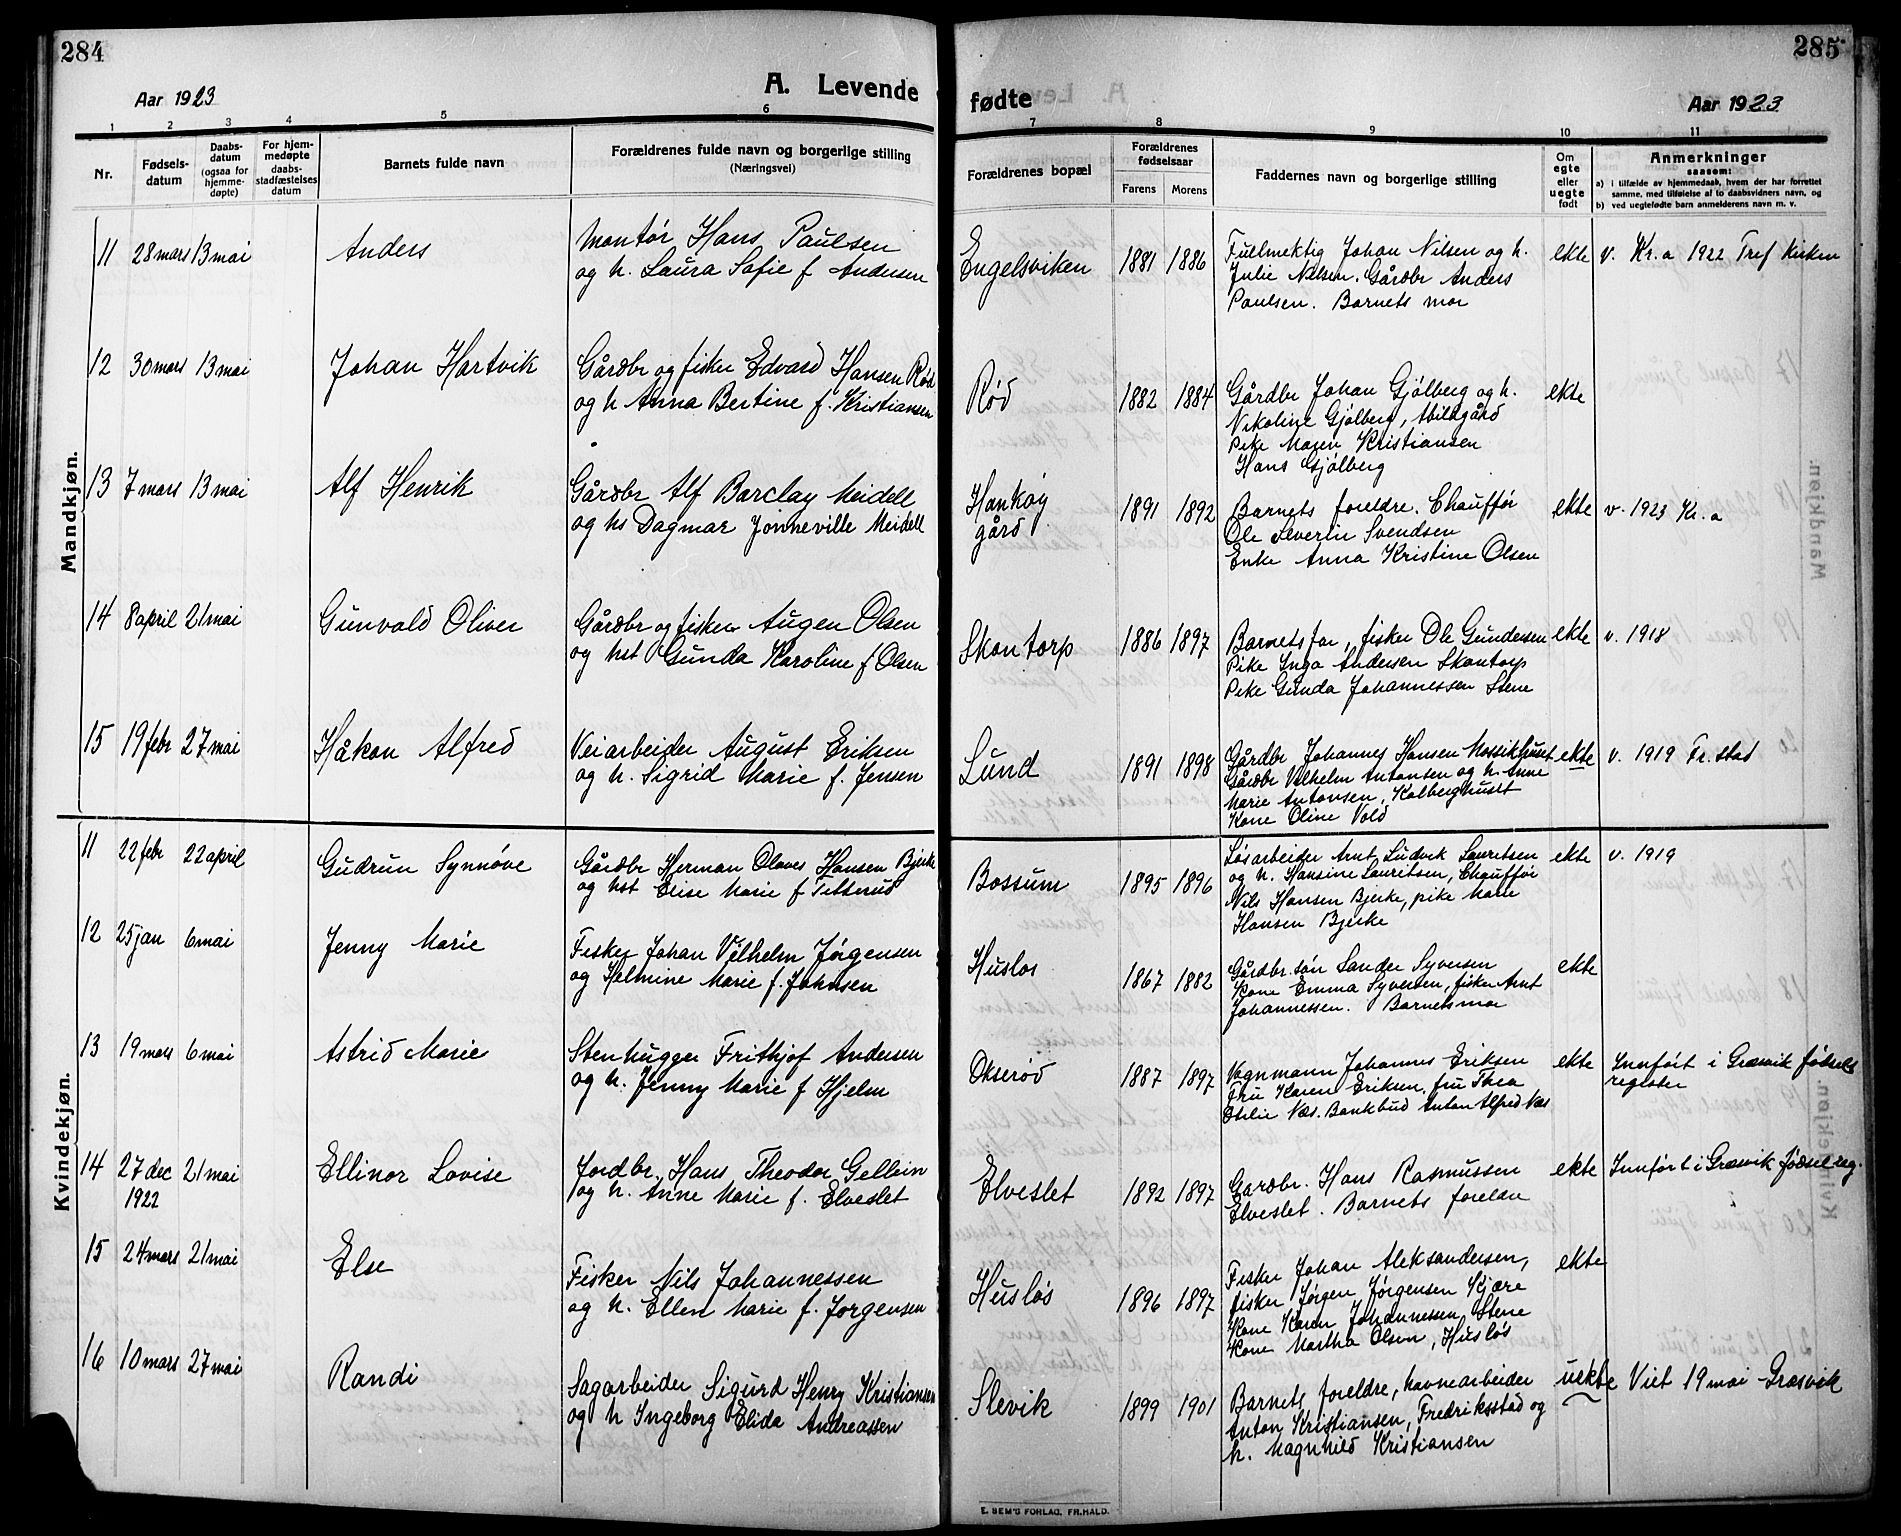 284
Aar 1923
A. Levende
1 2 3 4 5 6
Nr.
Fødsels-
datum
Daabs-
datum
(ogsaa for
hjemme-
døpte)
For hjem-
medøpte
daabs-
stadfæstelses
datum
Barnets fulde navn
Forældrenes fulde navn og borgerlige stilling
(Næringsvei)
Mandkjøn.
11 28 mars 13 mai Anders
Montør Hans Paulsen
og h. Laura Sofie f Andersen
12 30 mars 13 mai Johan Hartvik
Gårdbr og fisker Edvard Hansen Rød
og h Anna Bertine f. Kristiansen
13 7 mars 13 mai Alf Henrik
Gårdbr Alf Barclay Meidell
og hs Dagmar Jonneville Meidell
14 8 april 21 mai Gunvald Oliver
Gårdbr og fisker Augen Olsen
og hst Gunda Karoline f Olsen
15 19 febr 27 mai Håkon Alfred
Veiarbeider August Eriksen
og h. Sigrid Marie f. Jensen
Kvindekjøn.
11 22 febr 22 april Gudrun Synnøve
Gårdbr Herman Olaves Hansen Bjerke
og hst Elise Marie f Titterud
12 25 jan 6 mai Jenny Marie
Fisker Johan Vilhelm Jørgensen
og Helmine Marie f. Johnsen
13 19 mars 6 mai Astrid Marie
Stenhugger Frithjof Andersen
og h. Jenny Marie f Hjelm
14 27 dec 21 mai Ellinor Lovise
1922
Jordbr. Hans Theodor Gellein
og h. Anne Marie f. Elveslet
15 24 mars 21 mai Else
Fisker Nils Johannessen
og h. Ellen Marie f. Jørgensen
16 10 mars 27 mai Randi
Sagarbeider Sigurd Henry Kristiansen
og h Ingeborg Elida Andreassen
285
fødte
Aar 1923
7 8 9 10 11
Forældrenes bopæl
Forældrenes
fødselsaar
Farens Morens
Faddernes navn og borgerlige stilling
Om
egte
eller
uegte
født
Anmerkninger
saasom:
a) i tilfælde av hjemmedaab, hvem der har forrettet
samme, med tilføielse af to daabsvidners navn, og
b) ved uegtefødte barn anmelderens navn m. v.
Engelsviken 1881 1886
Fuldmektig Johan Nilsen og h.
Julie Nilsen. Gårdbr Anders
Paulsen. Barnets mor
ekte v. Kr.a 1922 Tref Kirken
Rød 1882 1884
Gårdbr Johan Gjølberg og h.
Nikoline Gjølberg, Abildgård
Pike Magen Kristiansen
Hans Gjølberg
ekte
Hankøy
gård
1891 1892
Barnets foreldre. Chauffør
Ole Severin Svendsen
Enke Anna Kristine Olsen
ekte v. 1923 Kr.a
Skontorp 1886 1897
Barnets far, fisker Ole Gundersen
Pike Inga Andersen Skontorp
Pike Gunda Johannessen Stene
ekte v. 1918
Lund 1891 1898
Gårdbr Johannes Hansen Mossikhuset
Gårdbr Vilhelm Antonsen og h. Anne
Marie Antonsen, Kolberghuset
Kone Oline Vold
ekte v. 1919 Fr.stad
Bossum 1895 1896
Løsarbeider Arnt Ludvik Lauritsen
og h. Hansine Lauritsen, Chauffør
Nils Hansen Bjerke, pike Marie
Hansen Bjerke
ekte v. 1919
Husløs 1867 1882
Gårdbr. søn Sander Syversen
Kone Emma Syversen, fisker Arnt
Johannessen. Barnets mor
ekte
Okserød 1887 1897
Vognmann Johannes Eriksen
Fru Karen Eriksen, fru Thea
Otelie Næs. Bankbud Anton Alfred Næs
ekte Innført i Græsvik fødsels
register
Elveslet 1892 1897
Gardbr. Hans Rasmussen
Elveslet. Barnets foreldre
ekte Innført i Græsvik fødselreg.
Husløs 1896 1897
Fisker Johan Aleksandersen,
fisker Jørgen Jørgensen Kjære
Kone Karen Johannessen, Stene
Kone Martha Olsen, Husløs
ekte
Slevik 1899 1901
Barnets foreldre, havnearbeider
Anton Kristiansen, Fredriksstad og
h. Magnhild Kristiansen
uekte Viet 19 mai Græsvik
E. SEM'S FORLAG, FR.HALD.